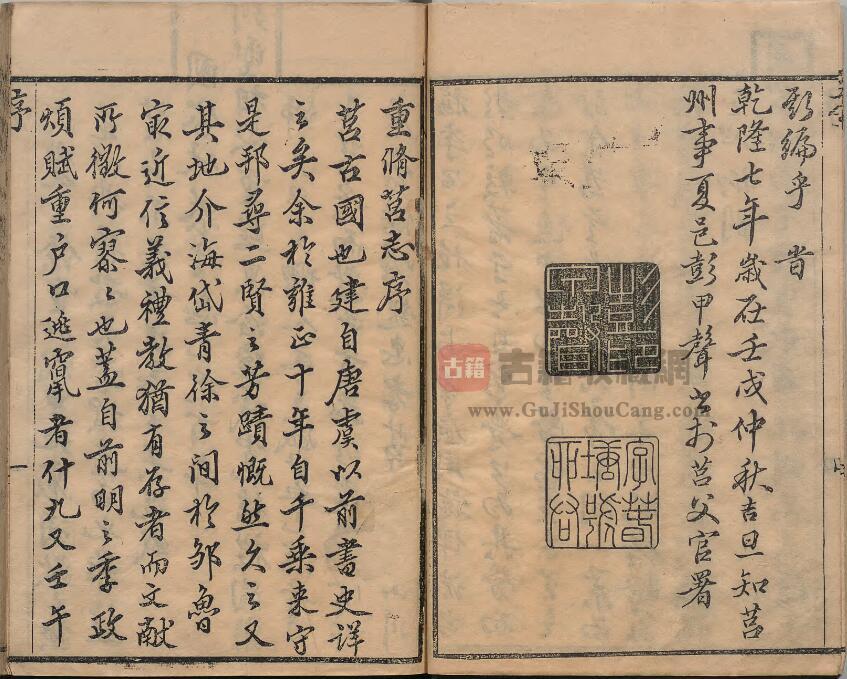 斯編乎旹
乾隆七年歲在壬戌仲秋吉旦知莒
州事夏邑彭甲聲書於莒父官署
古籍
古籍收藏網
www.GuJiShouCang.com
序
重脩莒志序
莒古國也建自唐虞以前書史詳
之矣余於雍正十年自千乘来守
是邦尋二賢之芳蹟慨然久之又
其地介海岱青徐之間於鄒魯
最近信義禮教猶有存者而文獻
所徵何寥寥也蓋自前明之季政
煩賦重户口逃竄者什九又壬午
序
一